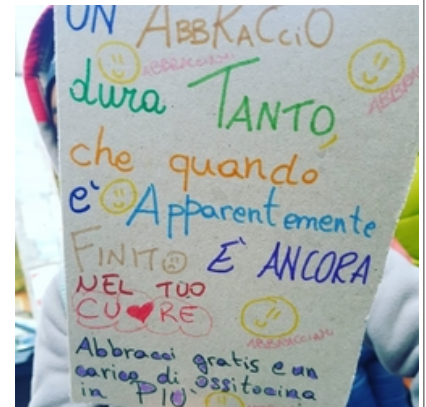 UN ABBRACCIO
ABBRACCIAMI
dura TANTO,
che quando
e' Apparentemente
FINITO E' ANCORA
NEL TUO
CU❤RE
ABBRACCIAMI
Abbracci gratis e un
carico di ossitocina
in PIU'